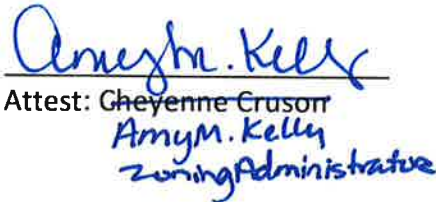 Amy M. Kelly
Attest: Cheyenne Cruson
Amy M. Kelly
Zoning Administrator